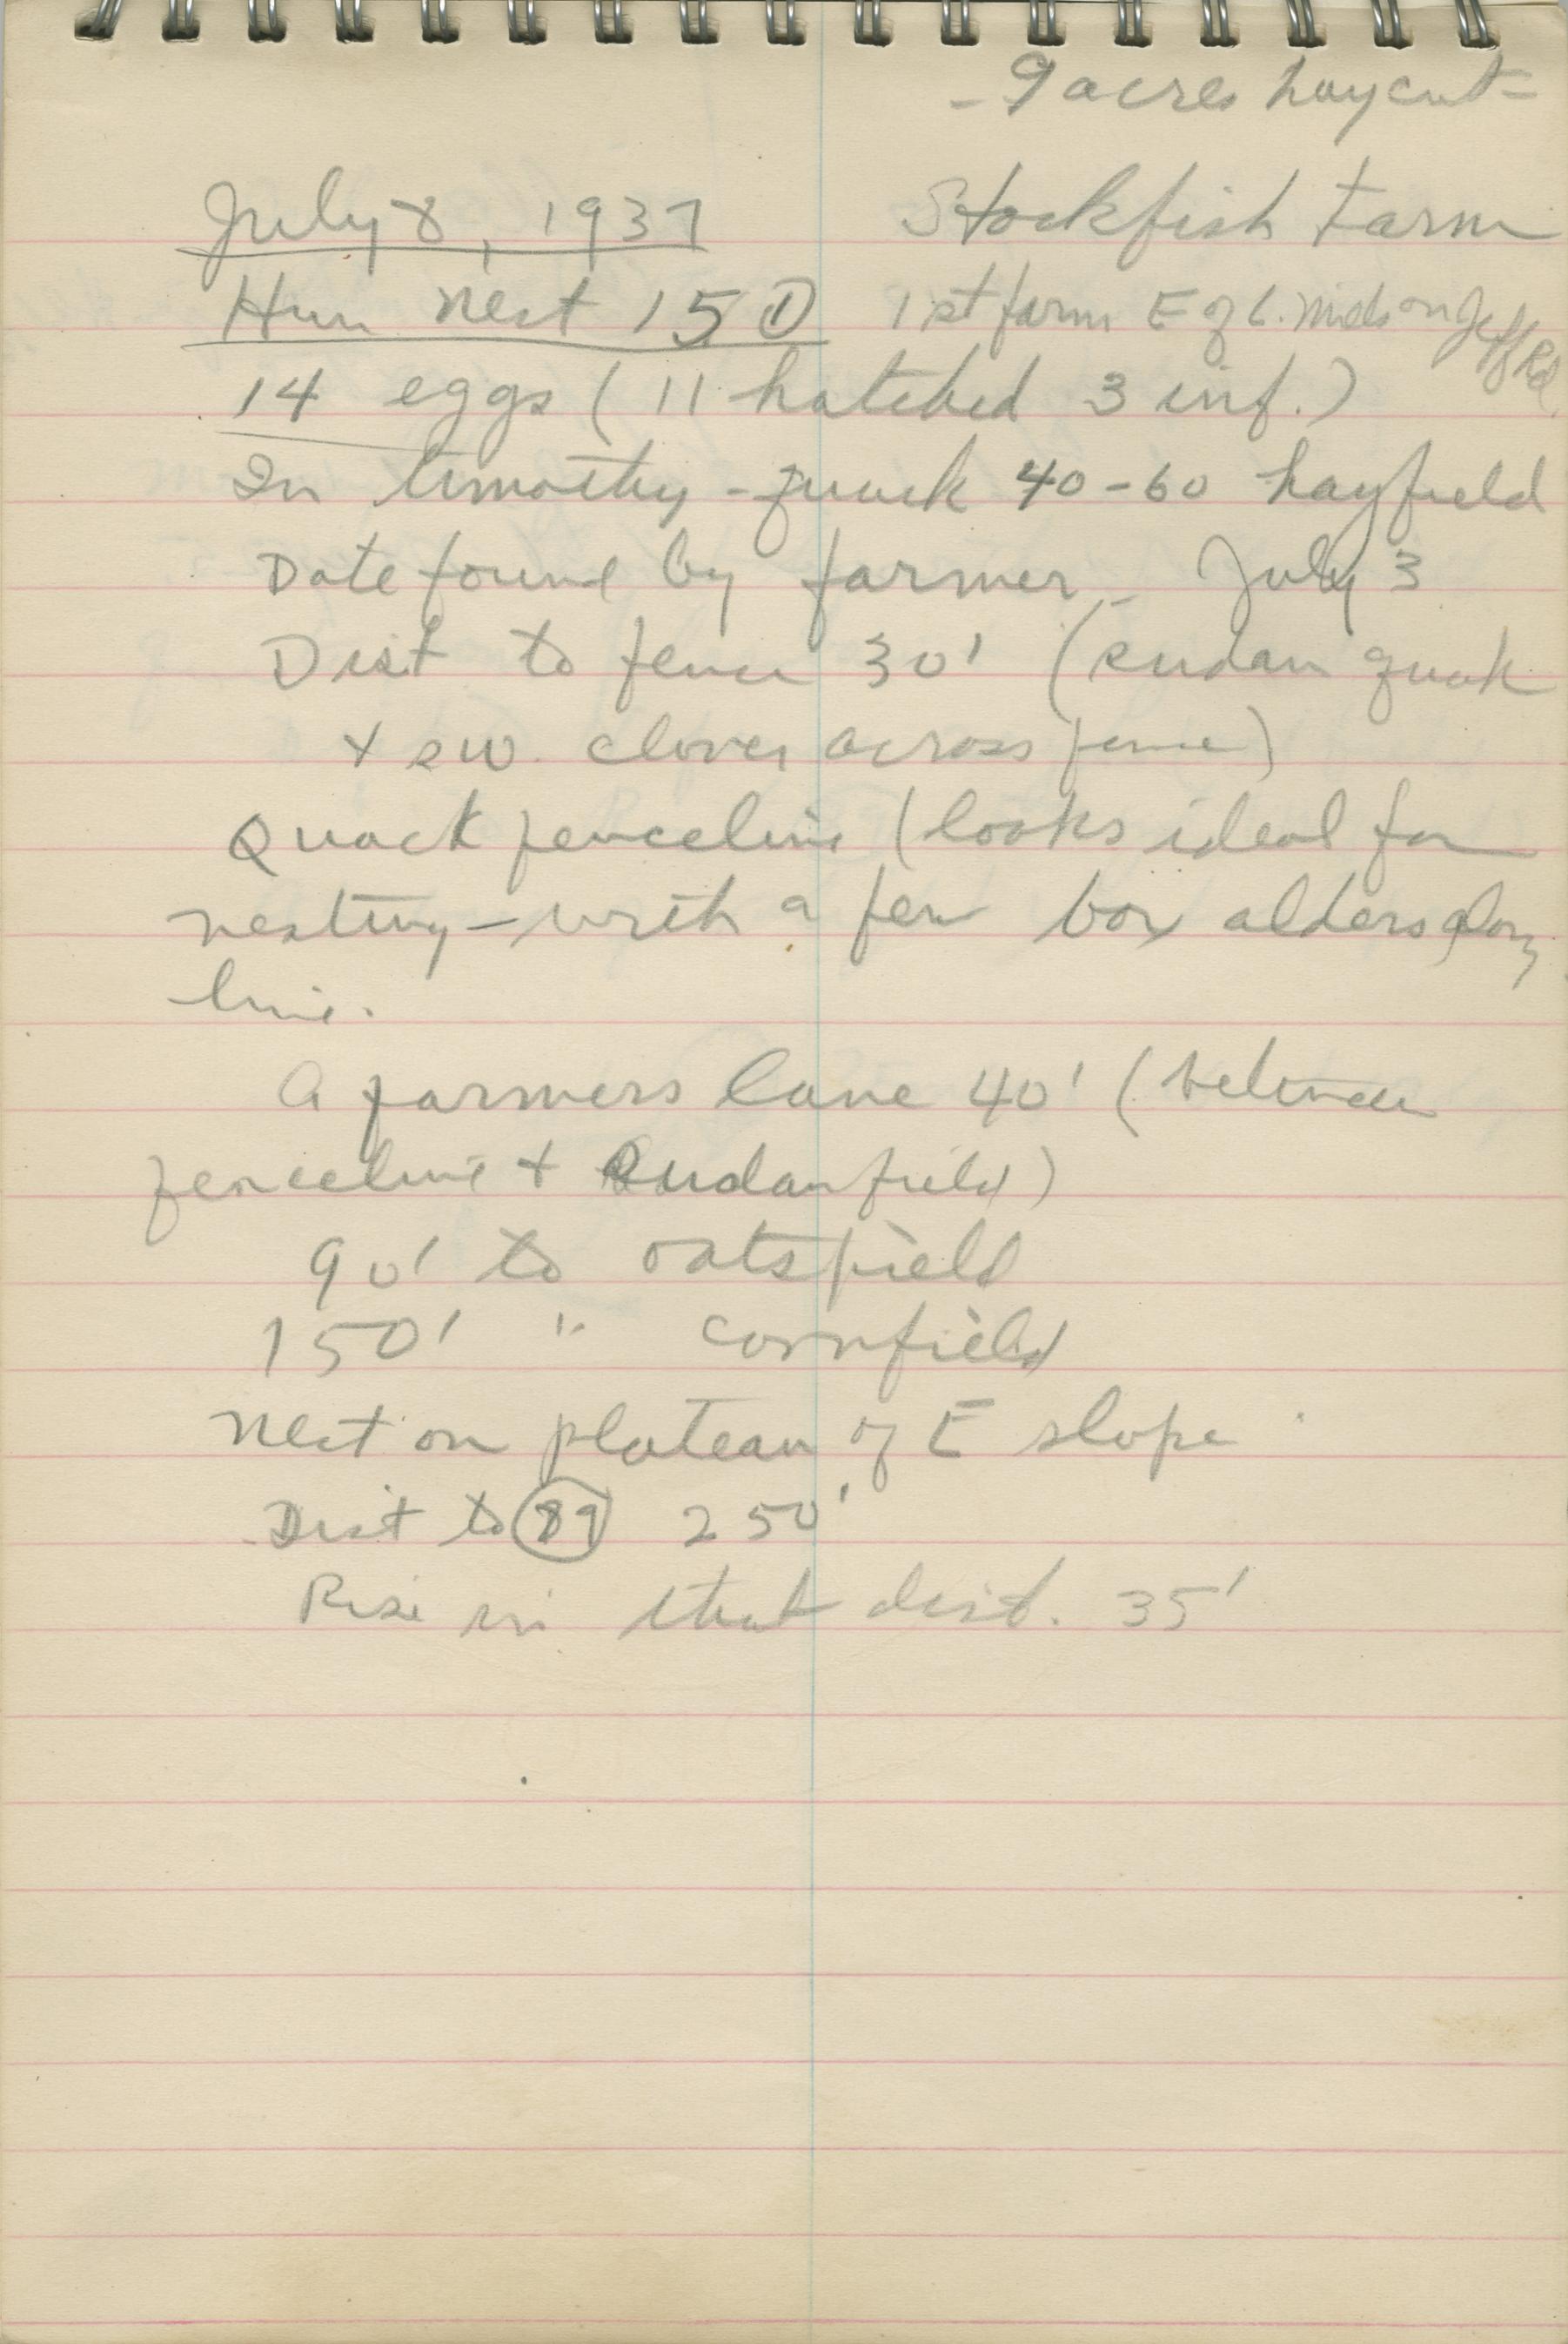 - 9 acres hay cut -
July 8, 1937 Stockfish Farm
Hun nest 15 D 1st farm E of L. on Jeff Rd.
14 eggs (11 hatched 3 inf.)
In timothy - quack 40-60 hayfield
Date found by farmer - July 3
Dist to fence 30' (sudan quak
+ sw. clover across fence)
Quack fenceline (looks ideal for
nesting - with a few box alders along
line.
A farmers lane 40' (between
fenceline + Sudanfield)
90' to oatsfield
150' " cornfield
Nest on plateau of E slope
Dist to 89 250'
Rise in that dist. 35'